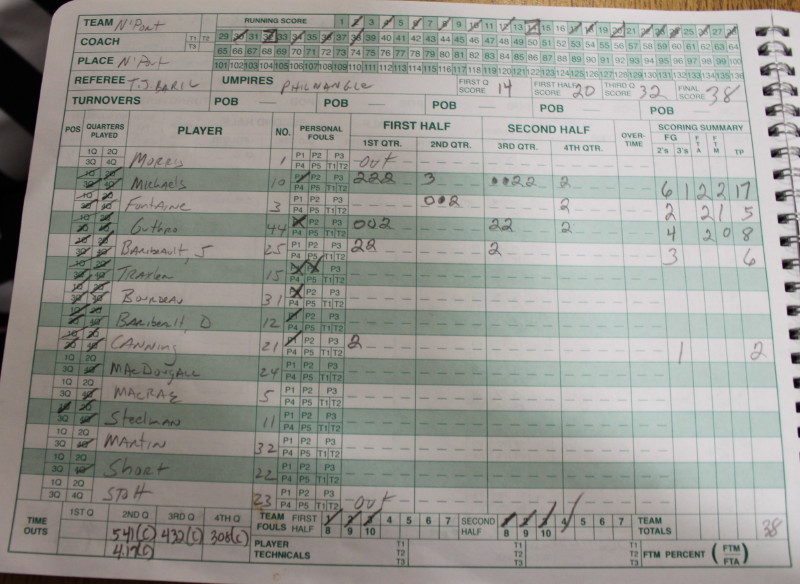 TEAM N'Port RUNNING SCORE 1 2 3 4 5 6 7 8 9 10 11 12 13 14 15 16 17 18 19 20 21 22 23 24 25 26 27 28
COACH T1 T2 T3 29 30 31 32 33 34 35 36 37 38 39 40 41 42 43 44 45 46 47 48 49 50 51 52 53 54 55 56 57 58 59 60 61 62 63 64
65 66 67 68 69 70 71 72 73 74 75 76 77 78 79 80 81 82 83 84 85 86 87 88 89 90 91 92 93 94 95 96 97 98 99 100
PLACE N'Port 101 102 103 104 105 106 107 108 109 110 111 112 113 114 115 116 117 118 119 120 121 122 123 124 125 126 127 128 129 130 131 132 133 134 135 136
REFEREE T.J. BARIL UMPIRES PHIL NANGLE FIRST Q SCORE 14 FIRST HALF SCORE 20 THIRD Q SCORE 32 FINAL SCORE 38
TURNOVERS POB POB POB POB POB
POS QUARTERS PLAYED PLAYER NO. PERSONAL FOULS FIRST HALF SECOND HALF OVER-TIME SCORING SUMMARY
1ST QTR. 2ND QTR. 3RD QTR. 4TH QTR. FG 2's 3's FTA FTM TP
1Q 2Q 3Q 4Q Murry 1 P1 P2 P3 P4 P5 T1 T2 out
1Q 2Q 3Q 4Q Michaels 10 P1 P2 P3 P4 P5 T1 T2 222 3 ••22 2 6 1 2 2 17
1Q 2Q 3Q 4Q Fontaine 3 P1 P2 P3 P4 P5 T1 T2 0•2 2 2 2 1 5
1Q 2Q 3Q 4Q Guthro 44 P1 P2 P3 P4 P5 T1 T2 002 22 2 4 2 0 8
1Q 2Q 3Q 4Q Baribeault, J 25 P1 P2 P3 P4 P5 T1 T2 22 2 3 6
1Q 2Q 3Q 4Q Traxler 15 P1 P2 P3 P4 P5 T1 T2
1Q 2Q 3Q 4Q Bourdeau 31 P1 P2 P3 P4 P5 T1 T2
1Q 2Q 3Q 4Q Baribeault, D 12 P1 P2 P3 P4 P5 T1 T2
1Q 2Q 3Q 4Q CANNING 21 P1 P2 P3 P4 P5 T1 T2 2 1 2
1Q 2Q 3Q 4Q MacDougall 24 P1 P2 P3 P4 P5 T1 T2
1Q 2Q 3Q 4Q MacRae 5 P1 P2 P3 P4 P5 T1 T2
1Q 2Q 3Q 4Q Steelman 11 P1 P2 P3 P4 P5 T1 T2
1Q 2Q 3Q 4Q Martin 32 P1 P2 P3 P4 P5 T1 T2
1Q 2Q 3Q 4Q Short 22 P1 P2 P3 P4 P5 T1 T2
1Q 2Q 3Q 4Q 23 P1 P2 P3 P4 P5 T1 T2 out
TIME OUTS 1ST Q 2ND Q 3RD Q 4TH Q TEAM FOULS FIRST HALF 1 2 3 4 5 6 7 8 9 10 SECOND HALF 1 2 3 4 5 6 7 8 9 10 TEAM TOTALS 38
541(C) 432(C) 308(C)
417(C) PLAYER TECHNICALS T1 T2 T3 T1 T2 T3 T1 T2 T3 FTM PERCENT (FTM/FTA)